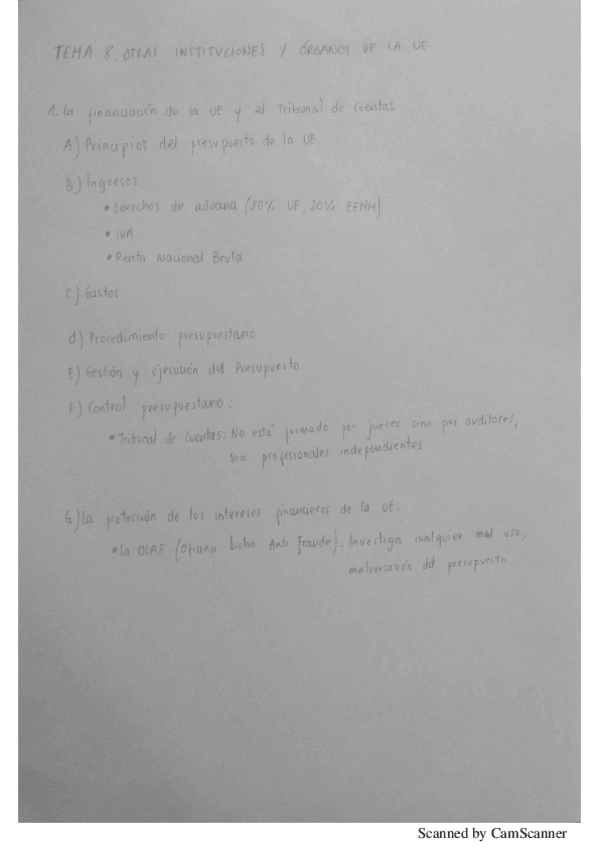 TEMA 8. OTRAS INSTITUCIONES Y ÓRGANOS DE LA UE
1. La financiación de la UE y el Tribunal de Cuentas
A) Principios del presupuesto de la UE
B) Ingresos
• Derechos de aduana (80% UE, 20% EEMM)
• IVA
• Renta Nacional Bruta
C) Gastos
d) Procedimiento presupuestario
E) Gestión y ejecución del Presupuesto
F) Control presupuestario:
• Tribunal de Cuentas: No está formado por jueces sino por auditores,
son profesionales independientes
G) La protección de los intereses financieros de la UE:
• La OLAF (Oficina Lucha Anti Fraude): Investiga cualquier mal uso,
malversación del presupuesto
Scanned by CamScanner